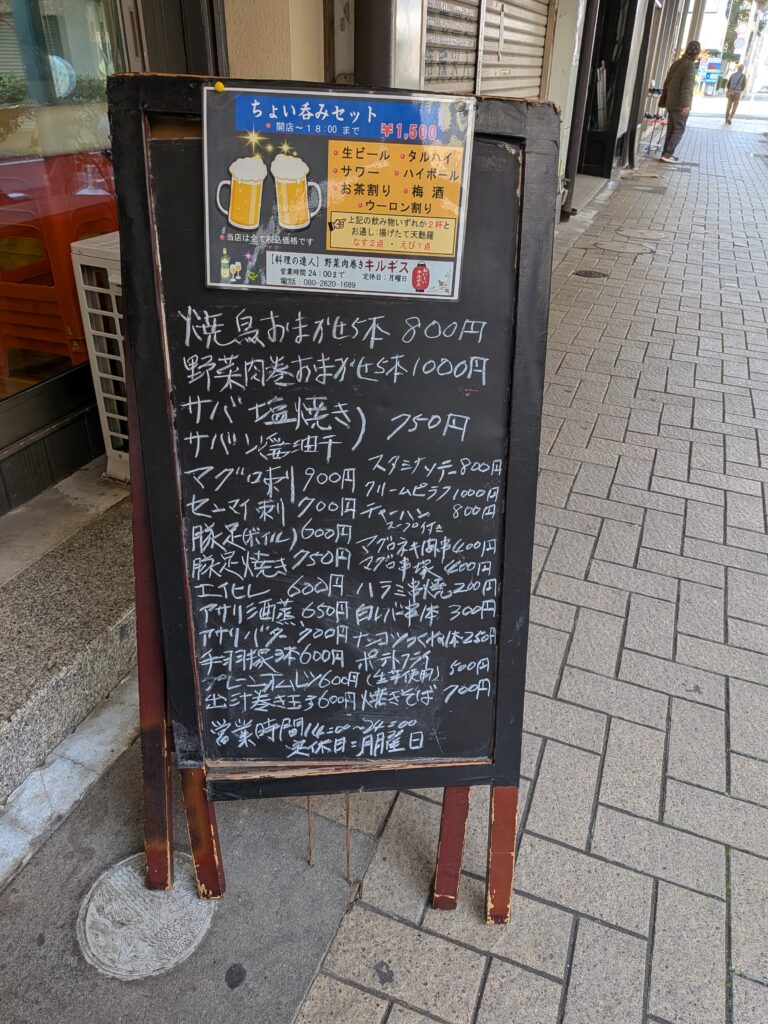 ちょい呑みセット
開店～18:00 まで ￥1,500
・生ビール ・タルハイ
・サワー ・ハイボール
・お茶割り ・梅 酒
・ウーロン割り
上記の飲み物いずれか2杯と
お通し:揚げたて天麩羅
なす2点 ・ えび1点
＊当店は全て税込価格です
[料理の達人] 野菜肉巻きキルギス
営業時間 24:00まで 定休日:月曜日
電話:080-2620-1689
焼鳥おまかせ5本 800円
野菜肉巻おまかせ5本1000円
サバ塩焼き
サバ醤油干 ) 750円
マグロ刺 900円
センマイ刺 700円
豚足(ボイル) 600円
豚足焼き 750円
エイヒレ 600円
アサリ酒蒸 650円
アサリバター 700円
手羽塚3本600円
プレーンオムレツ600円
出汁巻き玉子600円
スタミナソテー800円
クリームピラフ1000円
チャーハン 800円
スープ付き
マグロネギ間串400円
マグロ串塚 400円
ハラミ串焼200円
白レバ串1本 300円
ナンコツつくね1本250円
ポテトフライ
(生芋使用) 500円
焼きそば 700円
営業時間14:00～24:00
定休日:月曜日